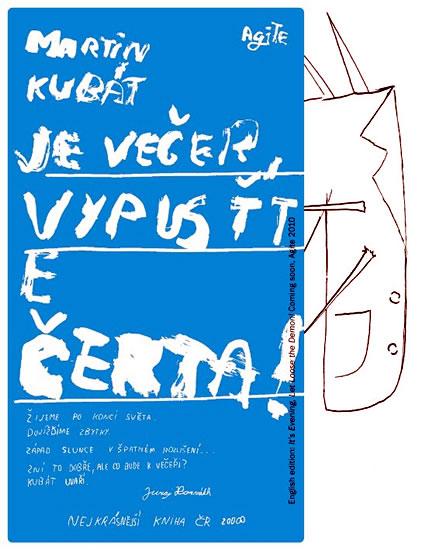 MARTIN
KUBÁT
AgiTE
JE VEČER,
VYPUSŤT
E
ČERTA!
ŽIJEME PO KONCI SVĚTA.
DOJÍŽDÍME ZBYTKY.
ZÁPAD SLUNCE V ŠPATNÉM ROZLIŠENÍ...
ZNÍ TO DOBŘE, ALE CO BUDE K VEČEŘI?
KUBÁT UVAŘÍ.
Juraj Horváth
NEJKRÁSNĚJŠÍ KNIHA ČR 20000
English edition: It's Evening, Let Loose the Demon! Coming soon, Agite 2010